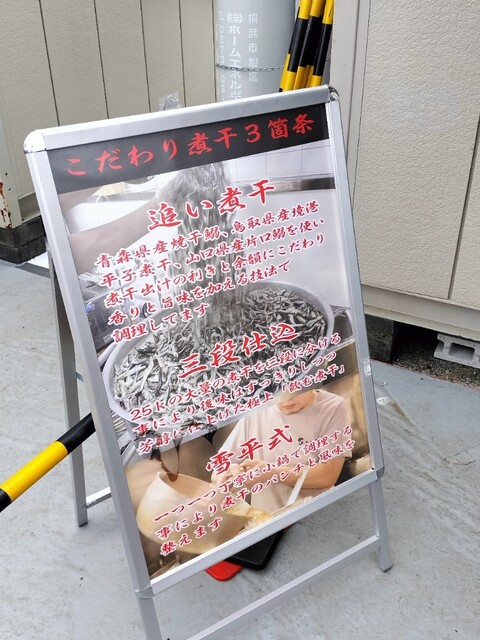 横浜市
ホームエネル
こだわり煮干3箇条
追い煮干
青森県産焼干鰯、鳥取県産境港
平子煮干、山口県産片口鰯を使い
煮干出汁の利きと余韻にこだわり
香りと旨味を加える技法で
調理してます
三段仕込
25kの大量の煮干を三段に分ける
事により後味はすっきりしつつ
芳醇に仕上げた極上「飲む煮干」
雪平式
一つ一つ丁寧に小鍋で調理する
事により煮干のパンチと風味を
整えます